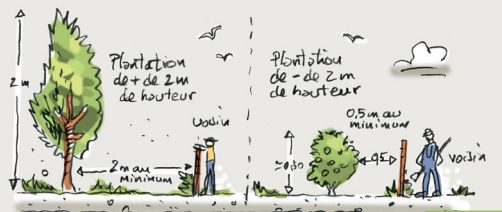 2 m
Plantation
de + de 2m
de hauteur
voisin
2m au
minimum
Plantation
de - de 2m
de hauteur
0,5m au
minimum
0,5
voisin